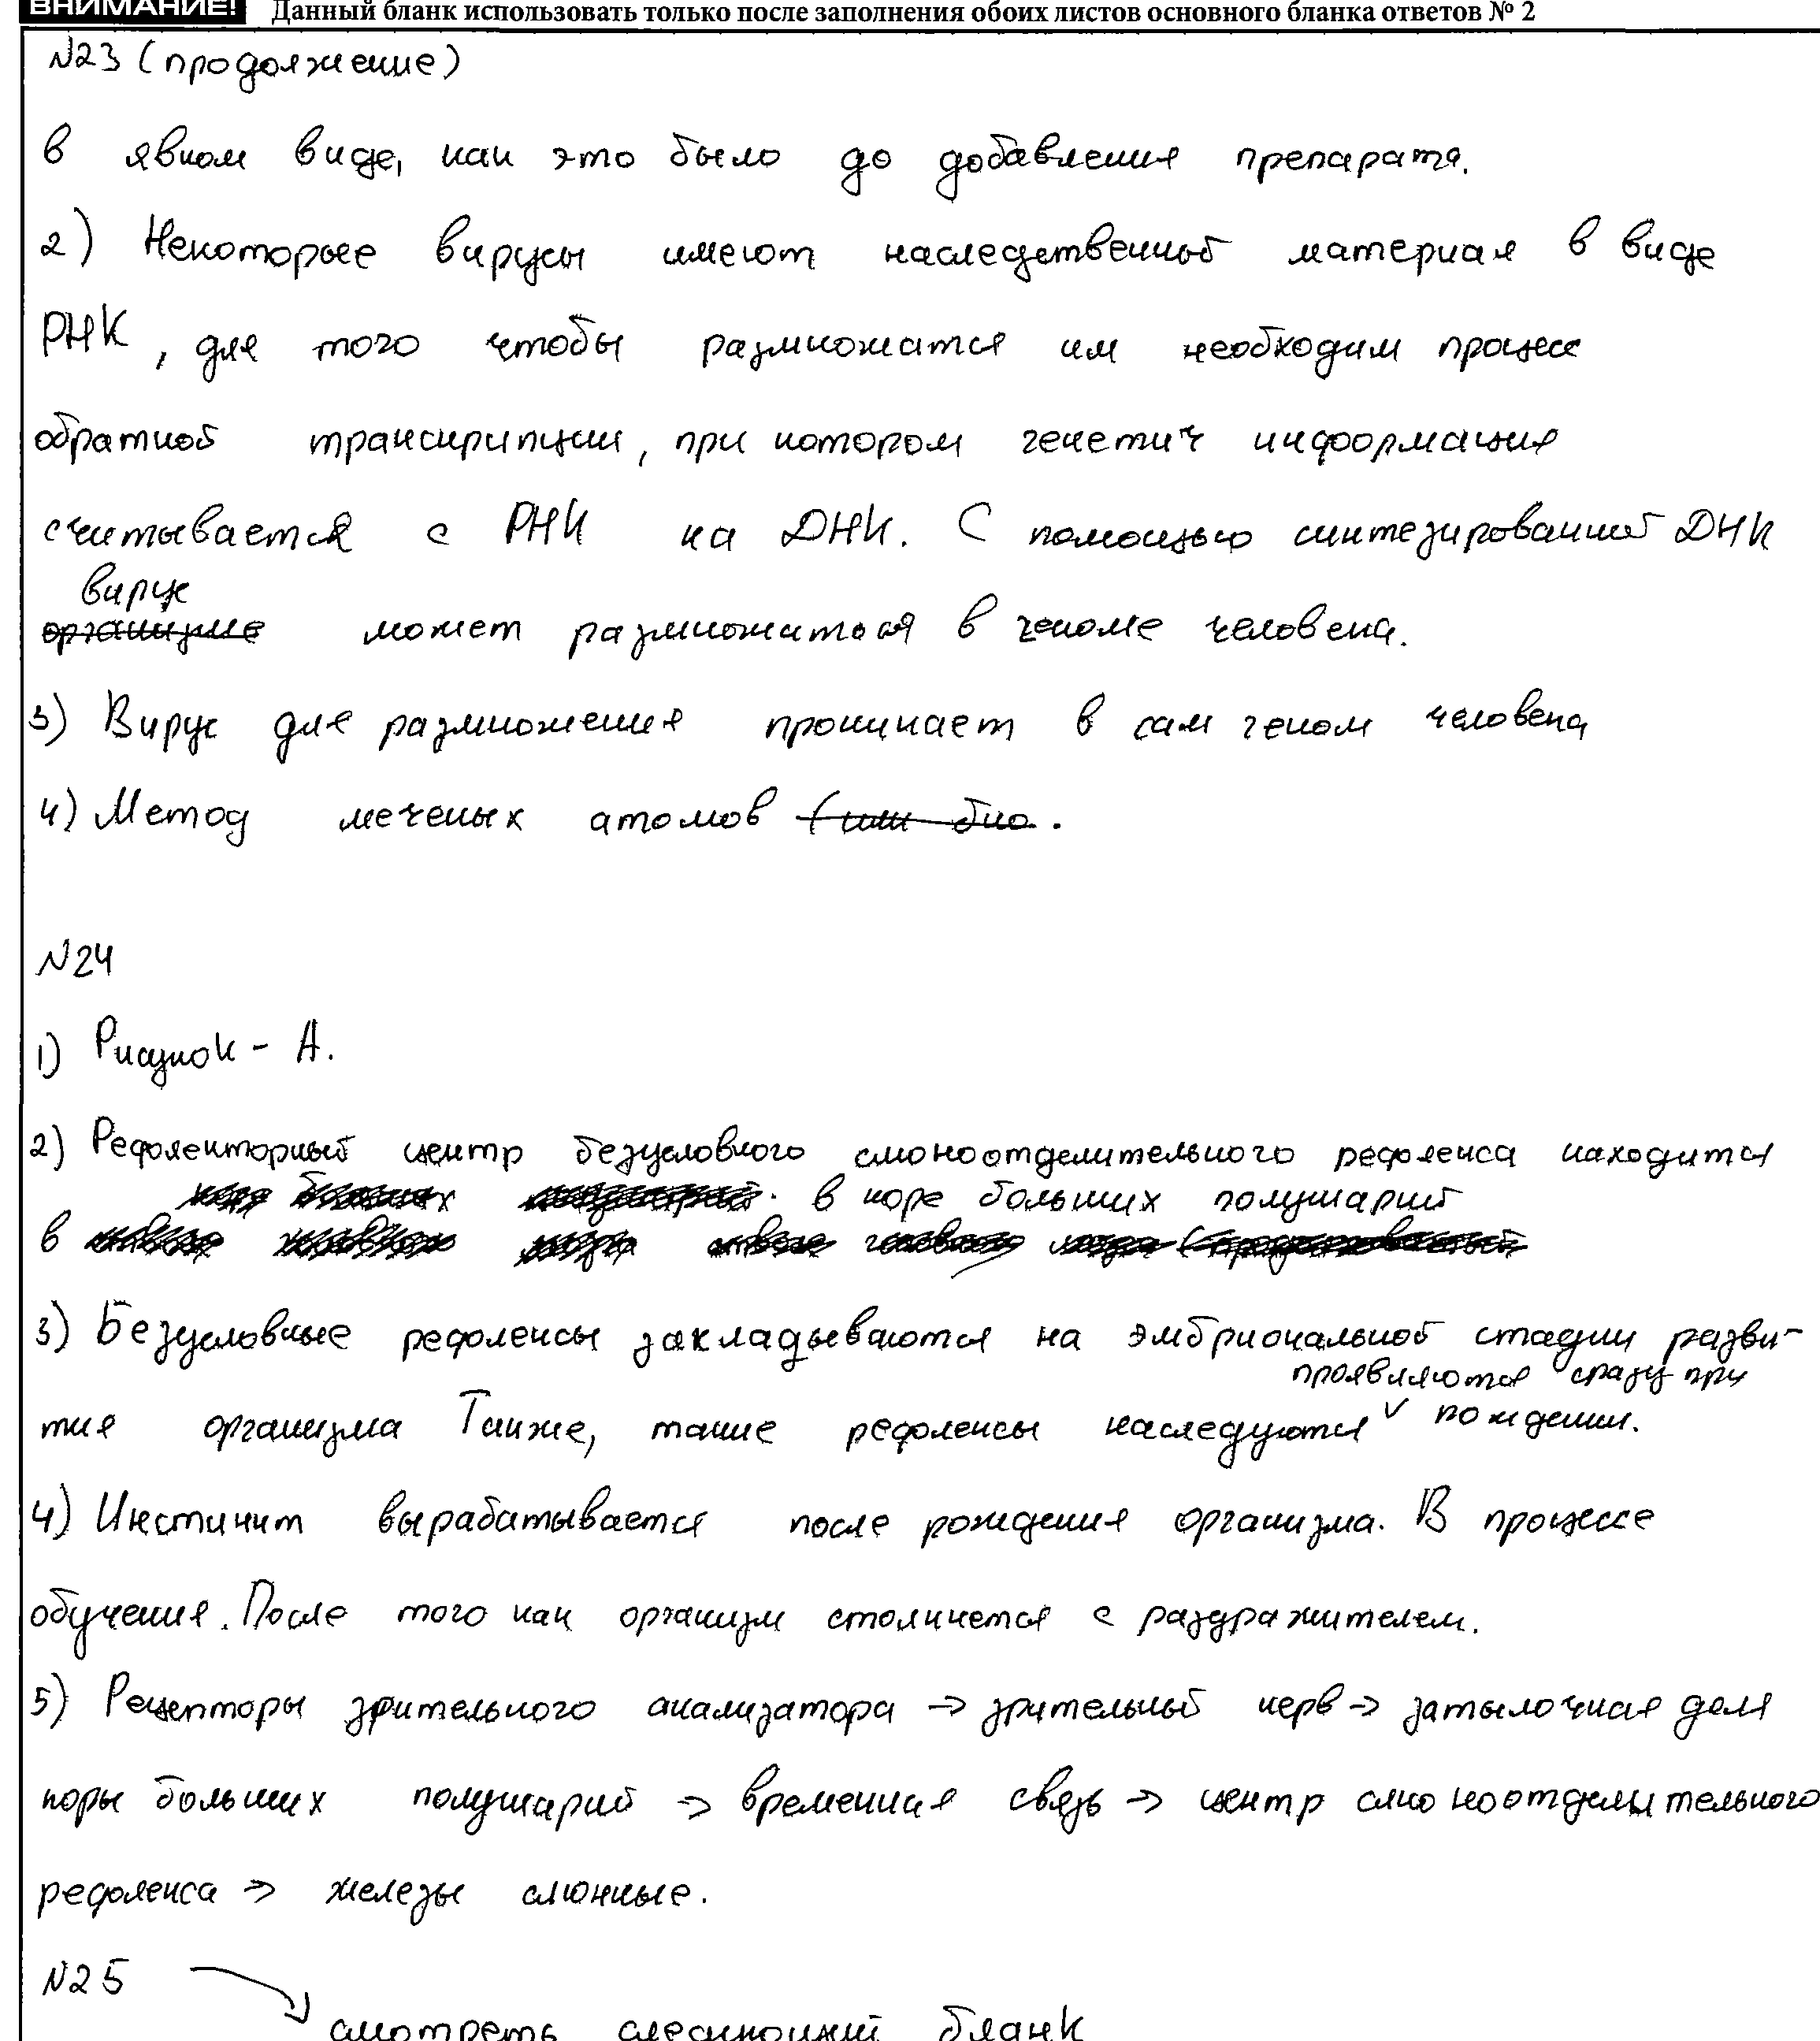 ВНИМАНИЕ! Данный бланк использовать только после заполнения обоих листов основного бланка ответов № 2
№23 (продолжение)
в явном виде, как это было до добавления препарата.
2) Некоторые вирусы имеют наследственный материал в виде
РНК, для того чтобы размножатся им необходим процесс
обратной транскрипции, при котором генетич информация
считывается с РНК на ДНК. С помощью синтезированной ДНК
вирус
организме может размножаться в геноме человека.
3) Вирус для размножения проникает в сам геном человека
4) Метод меченых атомов (или био.
№24
1) Рисунок - А.
2) Рефлекторный центр безусловного слюноотделительного рефлекса находится
в коре больших полушарий
в
3) Безусловные рефлексы закладываются на эмбриональной стадии разви-
проявляются сразу при
тия организма Также, такие рефлексы наследуются ✓ рождении.
4) Инстинкт вырабатывается после рождения организма. В процессе
обучения. После того как организм столкнется с раздражителем.
5) Рецепторы зрительного анализатора → зрительный нерв → затылочная доля
коры больших полушарий → временная связь → центр слюноотделительного
рефлекса → железы слюнные.
№25
смотреть следующий бланк